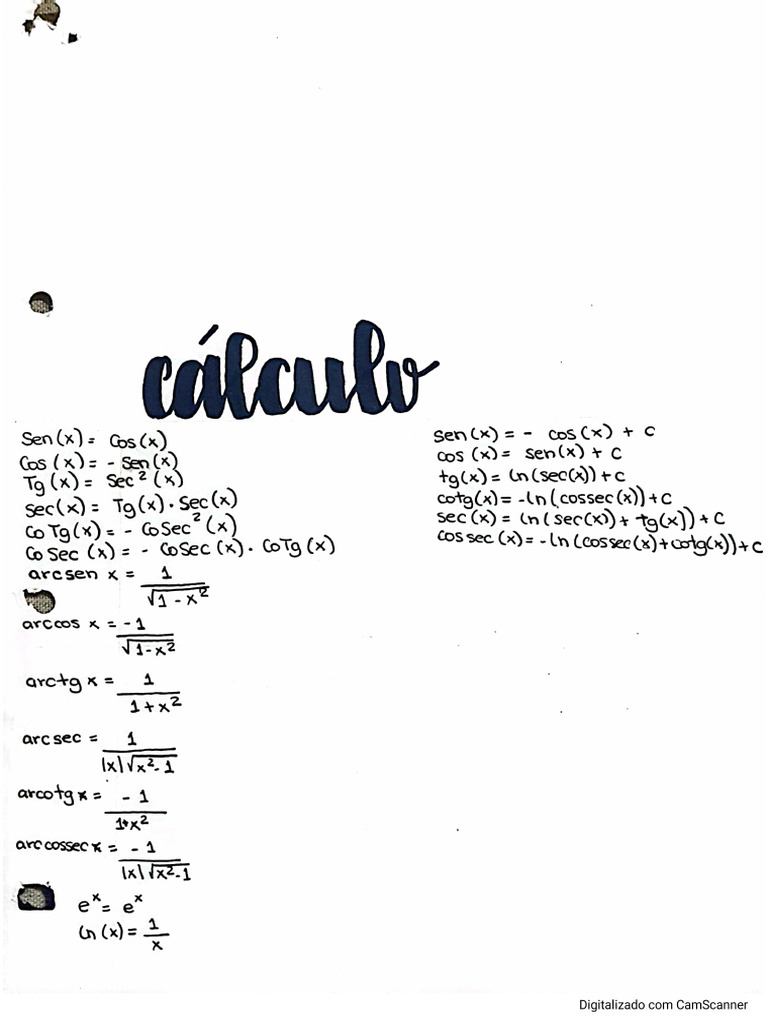 cálculo
Sen(x) = Cos(x)
Cos(x) = - Sen(x)
Tg(x) = Sec²(x)
sec(x) = Tg(x) · Sec(x)
CoTg(x) = - CoSec²(x)
CoSec (x) = - CoSec(x) · CoTg(x)
arcsen x = 1
√1 - x²
arccos x = -1
√1-x²
arctg x = 1
1+x²
arcsec = 1
|x|√x²-1
arcotg x = -1
1+x²
arccossec x = -1
|x|√x²-1
eˣ = eˣ
ln(x) = 1
x
sen(x) = - cos(x) + C
cos(x) = sen(x) + C
tg(x) = ln(sec(x)) + C
cotg(x) = -ln(cossec(x)) + C
sec(x) = ln(sec(x)) + tg(x)) + C
cossec(x) = -ln(cossec(x) + cotg(x)) + C
Digitalizado com CamScanner